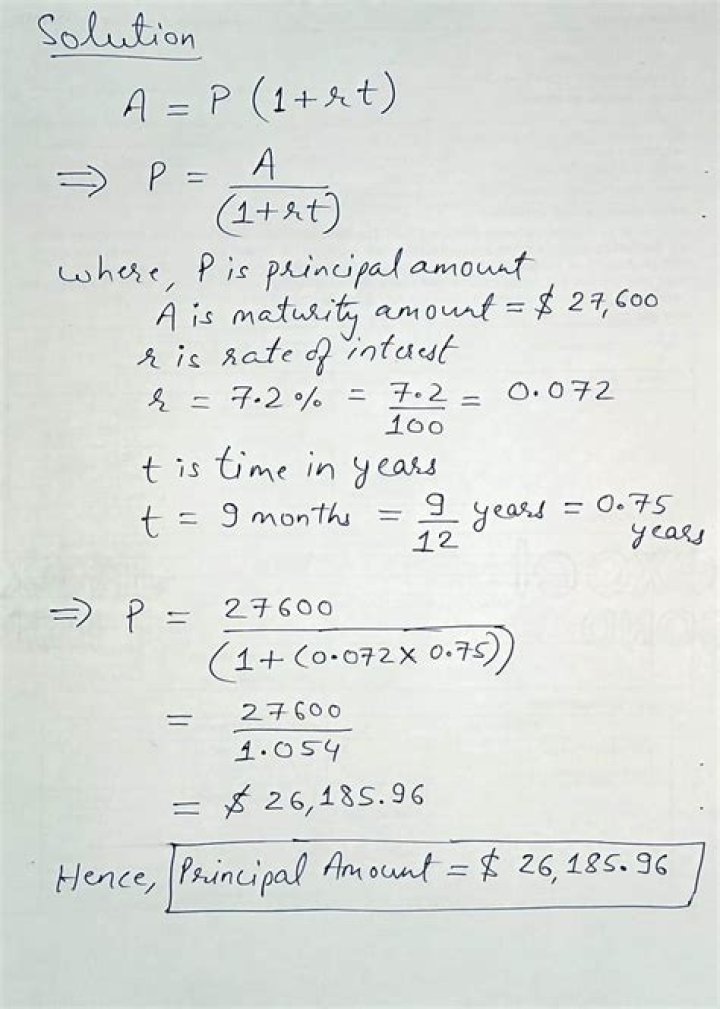 Solution
A = P (1+rt)
⇒ P = A / (1+rt)
where, P is principal amount
A is maturity amount = $ 27,600
r is rate of interest
r = 7.2 % = 7.2/100 = 0.072
t is time in years
t = 9 months = 9/12 years = 0.75 years
⇒ P = 27600 / (1+ (0.072 × 0.75))
= 27600 / 1.054
= $ 26,185.96
Hence, Principal Amount = $ 26,185.96